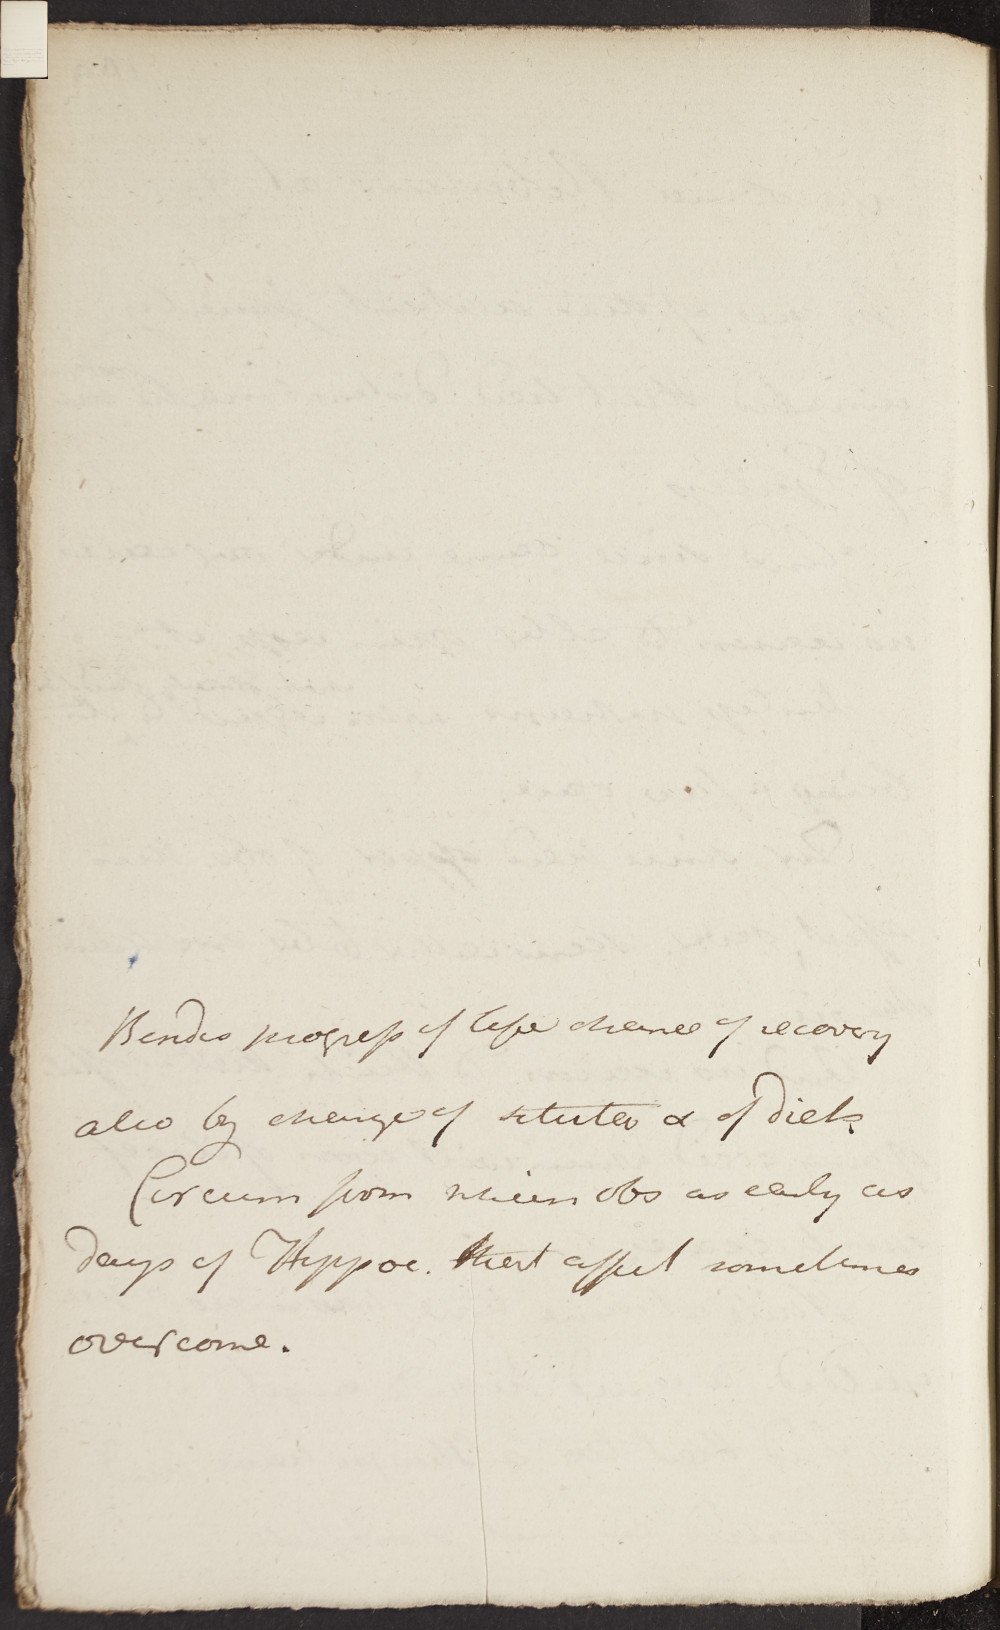 Besides progress of life chance of recovery
also by change of situatn & of Diet.
Circum from which obs as early as
Days of Hippoc. that affect sometimes
overcome.